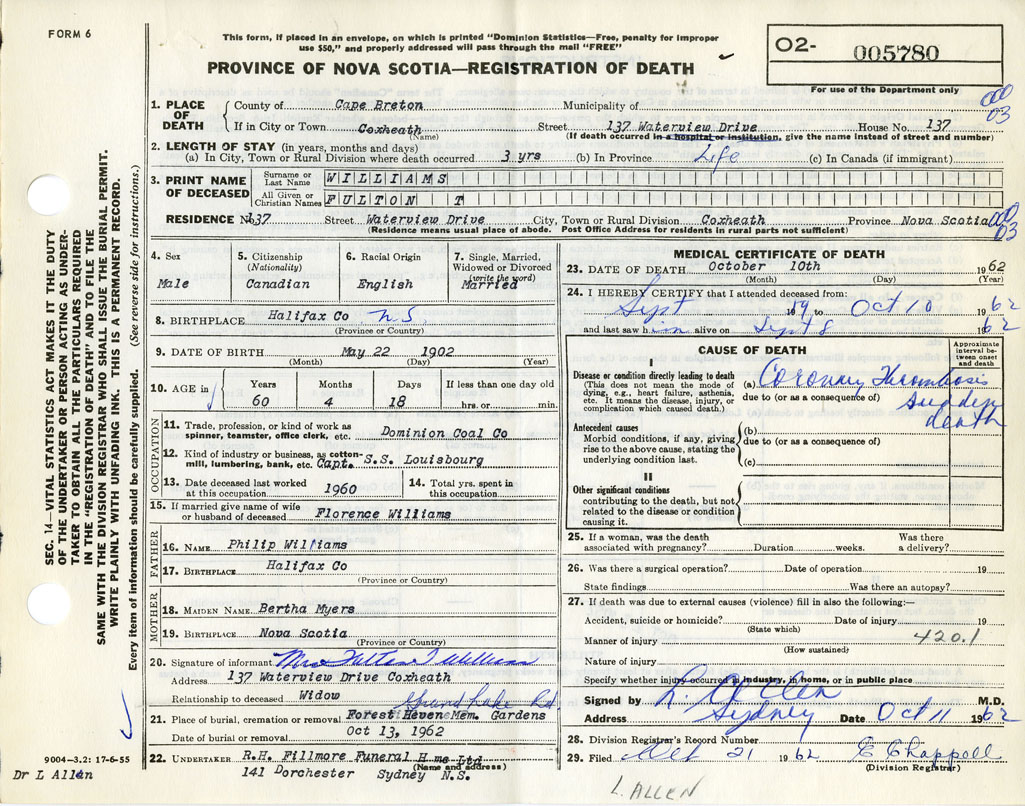 FORM 6
This form, if placed in an envelope, on which is printed "Dominion Statistics—Free, penalty for improper
use $50," and properly addressed will pass through the mail "FREE"
PROVINCE OF NOVA SCOTIA—REGISTRATION OF DEATH
O2- 005780
For use of the Department only
1. PLACE OF DEATH
County of Cape Breton Municipality of
If in City or Town Coxheath Street 137 Waterview Drive House No. 137
(Name) (If death occurred in a hospital or institution, give the name instead of street and number)
000
03
2. LENGTH OF STAY (in years, months and days)
(a) In City, Town or Rural Division where death occurred 3 yrs (b) In Province Life (c) In Canada (if immigrant)
3. PRINT NAME OF DECEASED
Surname or Last Name WILLIAMS
All Given or Christian Names FULTON T
RESIDENCE No 137 Street Waterview Drive City, Town or Rural Division Coxheath Province Nova Scotia
(Residence means usual place of abode. Post Office Address for residents in rural parts not sufficient)
000
03
4. Sex
Male
5. Citizenship
(Nationality)
Canadian
6. Racial Origin
English
7. Single, Married,
Widowed or Divorced
(write the word)
Married
8. BIRTHPLACE Halifax Co N.S.
(Province or Country)
9. DATE OF BIRTH May 22 1902
(Month) (Day) (Year)
10. AGE in
Years Months Days If less than one day old
60 4 18 hrs. or min.
OCCUPATION
11. Trade, profession, or kind of work as
spinner, teamster, office clerk, etc. Dominion Coal Co
12. Kind of industry or business, as cotton-
mill, lumbering, bank, etc. Capt. S.S. Louisbourg
13. Date deceased last worked
at this occupation 1960
14. Total yrs. spent in
this occupation
15. If married give name of wife
or husband of deceased Florence Williams
FATHER
16. NAME Philip Williams
17. BIRTHPLACE Halifax Co
(Province or Country)
MOTHER
18. MAIDEN NAME Bertha Myers
19. BIRTHPLACE Nova Scotia
(Province or Country)
20. Signature of informant Mrs Fulton T Williams
Address 137 Waterview Drive Coxheath
Relationship to deceased Widow
Grand Lake Rd
21. Place of burial, cremation or removal Forest Haven Mem. Gardens
Date of burial or removal Oct 13, 1962
22. UNDERTAKER R.H. Fillmore Funeral Hme Ltd
(Name and address)
141 Dorchester Sydney N.S.
MEDICAL CERTIFICATE OF DEATH
23. DATE OF DEATH October 10th 1962
(Month) (Day) (Year)
24. I HEREBY CERTIFY that I attended deceased from:
Sept 19 to Oct 10 1962
and last saw him alive on Sept 8 1962
CAUSE OF DEATH
Approximate
interval be-
tween onset
and death
I
Disease or condition directly leading to death
(This does not mean the mode of
dying, e.g., heart failure, asthenia,
etc. It means the disease, injury, or
complication which caused death.)
(a) Coronary Thrombosis
due to (or as a consequence of)
sudden
death
Antecedent causes
Morbid conditions, if any, giving
rise to the above cause, stating the
underlying condition last.
(b)
due to (or as a consequence of)
(c)
II
Other significant conditions
contributing to the death, but not
related to the disease or condition
causing it.
25. If a woman, was the death
associated with pregnancy? Duration weeks. Was there
a delivery?
26. Was there a surgical operation? Date of operation 19
State findings Was there an autopsy?
27. If death was due to external causes (violence) fill in also the following:—
Accident, suicide or homicide? Date of injury 19
(State which)
Manner of injury 420.1
(How sustained)
Nature of injury
Specify whether injury occurred in industry, in home, or in public place
Signed by L. Allen M.D.
Address Sydney Date Oct 11 1962
28. Division Registrar's Record Number
29. Filed Oct 21 1962 E Chappell
(Division Registrar)
L. ALLEN
SEC. 14—VITAL STATISTICS ACT MAKES IT THE DUTY
OF THE UNDERTAKER OR PERSON ACTING AS UNDER-
TAKER TO OBTAIN ALL THE PARTICULARS REQUIRED
IN THE "REGISTRATION OF DEATH" AND TO FILE THE
SAME WITH THE DIVISION REGISTRAR WHO SHALL ISSUE THE BURIAL PERMIT.
WRITE PLAINLY WITH UNFADING INK. THIS IS A PERMANENT RECORD.
Every item of information should be carefully supplied. (See reverse side for instructions.)
9004-3.2: 17-6-55
Dr L Allen